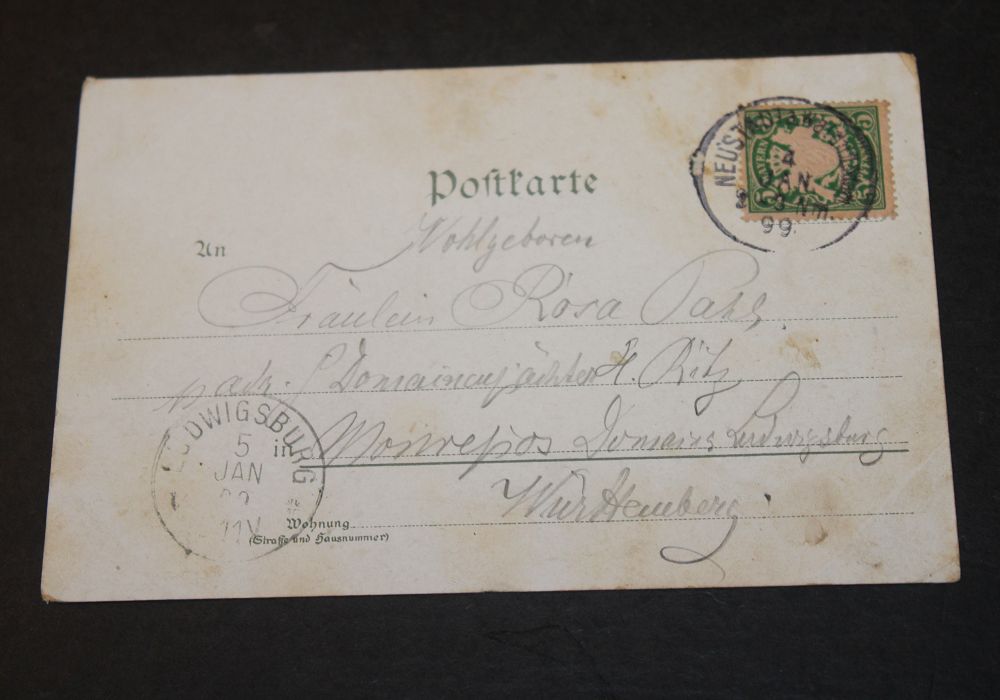 Postkarte
Wohlgeboren
An
Fräulein Rosa Pahl,
Domainenpächter H. Ritz
in Monrepos Domaine Ludwigsburg
Württemberg
Wohnung
(Straße und Hausnummer)
NEUSTADT
4
JAN.
99
BAYERN
5
LUDWIGSBURG
5
JAN
11V